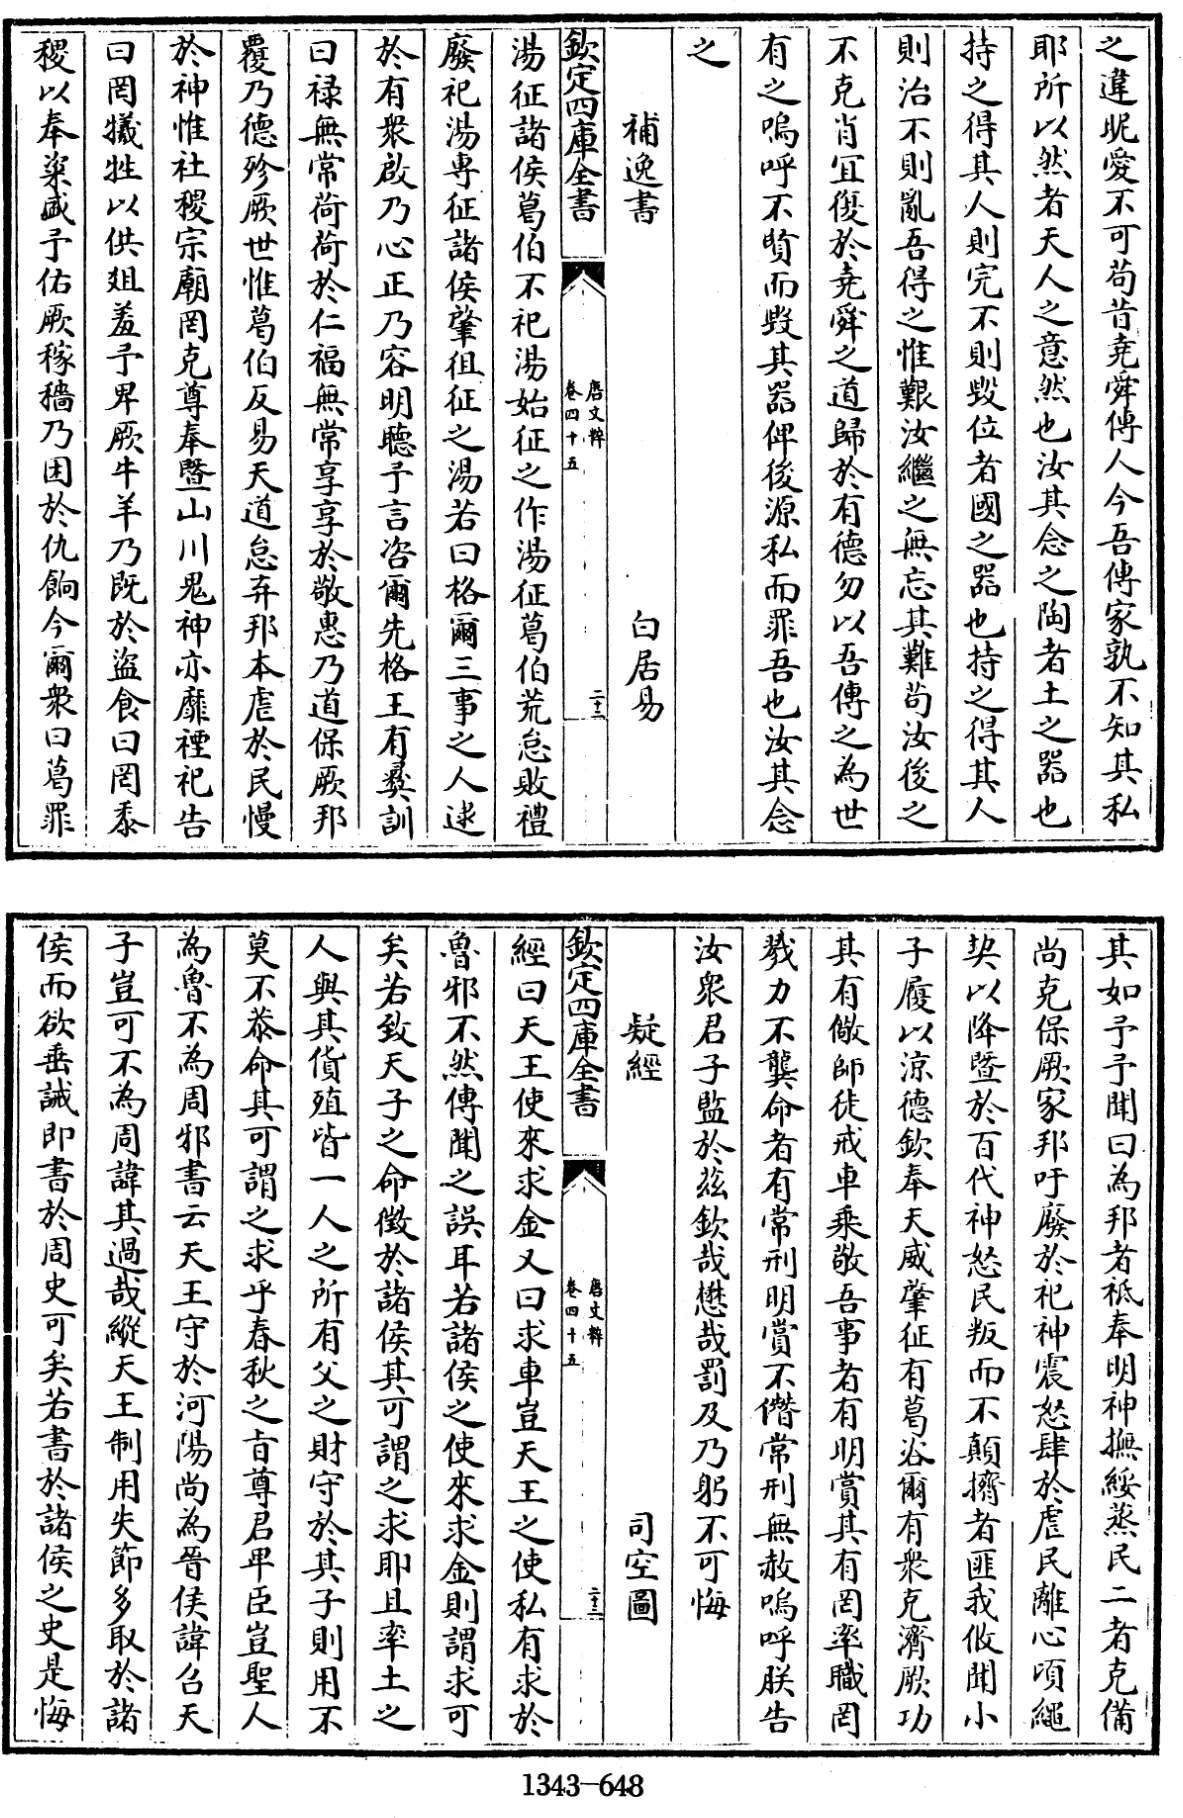 之違昵愛不可苟昔堯舜傳人今吾傳家孰不知其私
耶所以然者天人之意然也汝其念之陶者土之器也
持之得其人則完不則毀位者國之器也持之得其人
則治不則亂吾得之惟艱汝繼之無忘其難苟汝後之
不克肖宜復於堯舜之道歸於有德勿以吾傳之為世
有之嗚呼不貽而毀其器俾後源私而罪吾也汝其念
之
補逸書 白居易
欽定四庫全書
唐文粹
卷四十五
二十二
湯征諸侯葛伯不祀湯始征之作湯征葛伯荒怠敗禮
廢祀湯專征諸侯肇徂征之湯若曰格爾三事之人逮
於有衆啟乃心正乃容明聽予言咨爾先格王有彝訓
曰祿無常荷荷於仁福無常享享於敬惠乃道保厥邦
覆乃德殄厥世惟葛伯反易天道怠弃邦本虐於民慢
於神惟社稷宗廟罔克尊奉暨山川鬼神亦靡禋祀告
曰罔犧牲以供爼羞予畀厥牛羊乃既於盜食曰罔黍
稷以奉粢盛予佑厥稼穡乃困於仇餉今爾衆曰葛罪
其如予予聞曰為邦者祗奉明神撫綏蒸民二者克備
尚克保厥家邦吁廢於祀神震怒肆於虐民離心頃繩
契以降暨於百代神怒民叛而不顛擠者匪我攸聞小
子履以涼德欽奉天威肇征有葛咨爾有衆克濟厥功
其有儆師徒戒車乘敬吾事者有明賞其有罔率職罔
戮力不龔命者有常刑明賞不僭常刑無赦嗚呼朕告
汝衆君子監於茲欽哉懋哉罰及乃躬不可悔
疑經 司空圖
欽定四庫全書
唐文粹
卷四十五
二十三
經曰天王使來求金又曰求車豈天王之使私有求於
魯邪不然傳聞之誤耳若諸侯之使來求金則謂求可
矣若致天子之命徵於諸侯其可謂之求耶且率土之
人與其貨殖皆一人之所有父之財守於其子則用不
莫不恭命其可謂之求乎春秋之㫖尊君卑臣豈聖人
為魯不為周邪書云天王守於河陽尚為晉侯諱召天
子豈可不為周諱其過哉縱天王制用失節多取於諸
侯而欲垂誡即書於周史可矣若書於諸侯之史是悔
1343—648